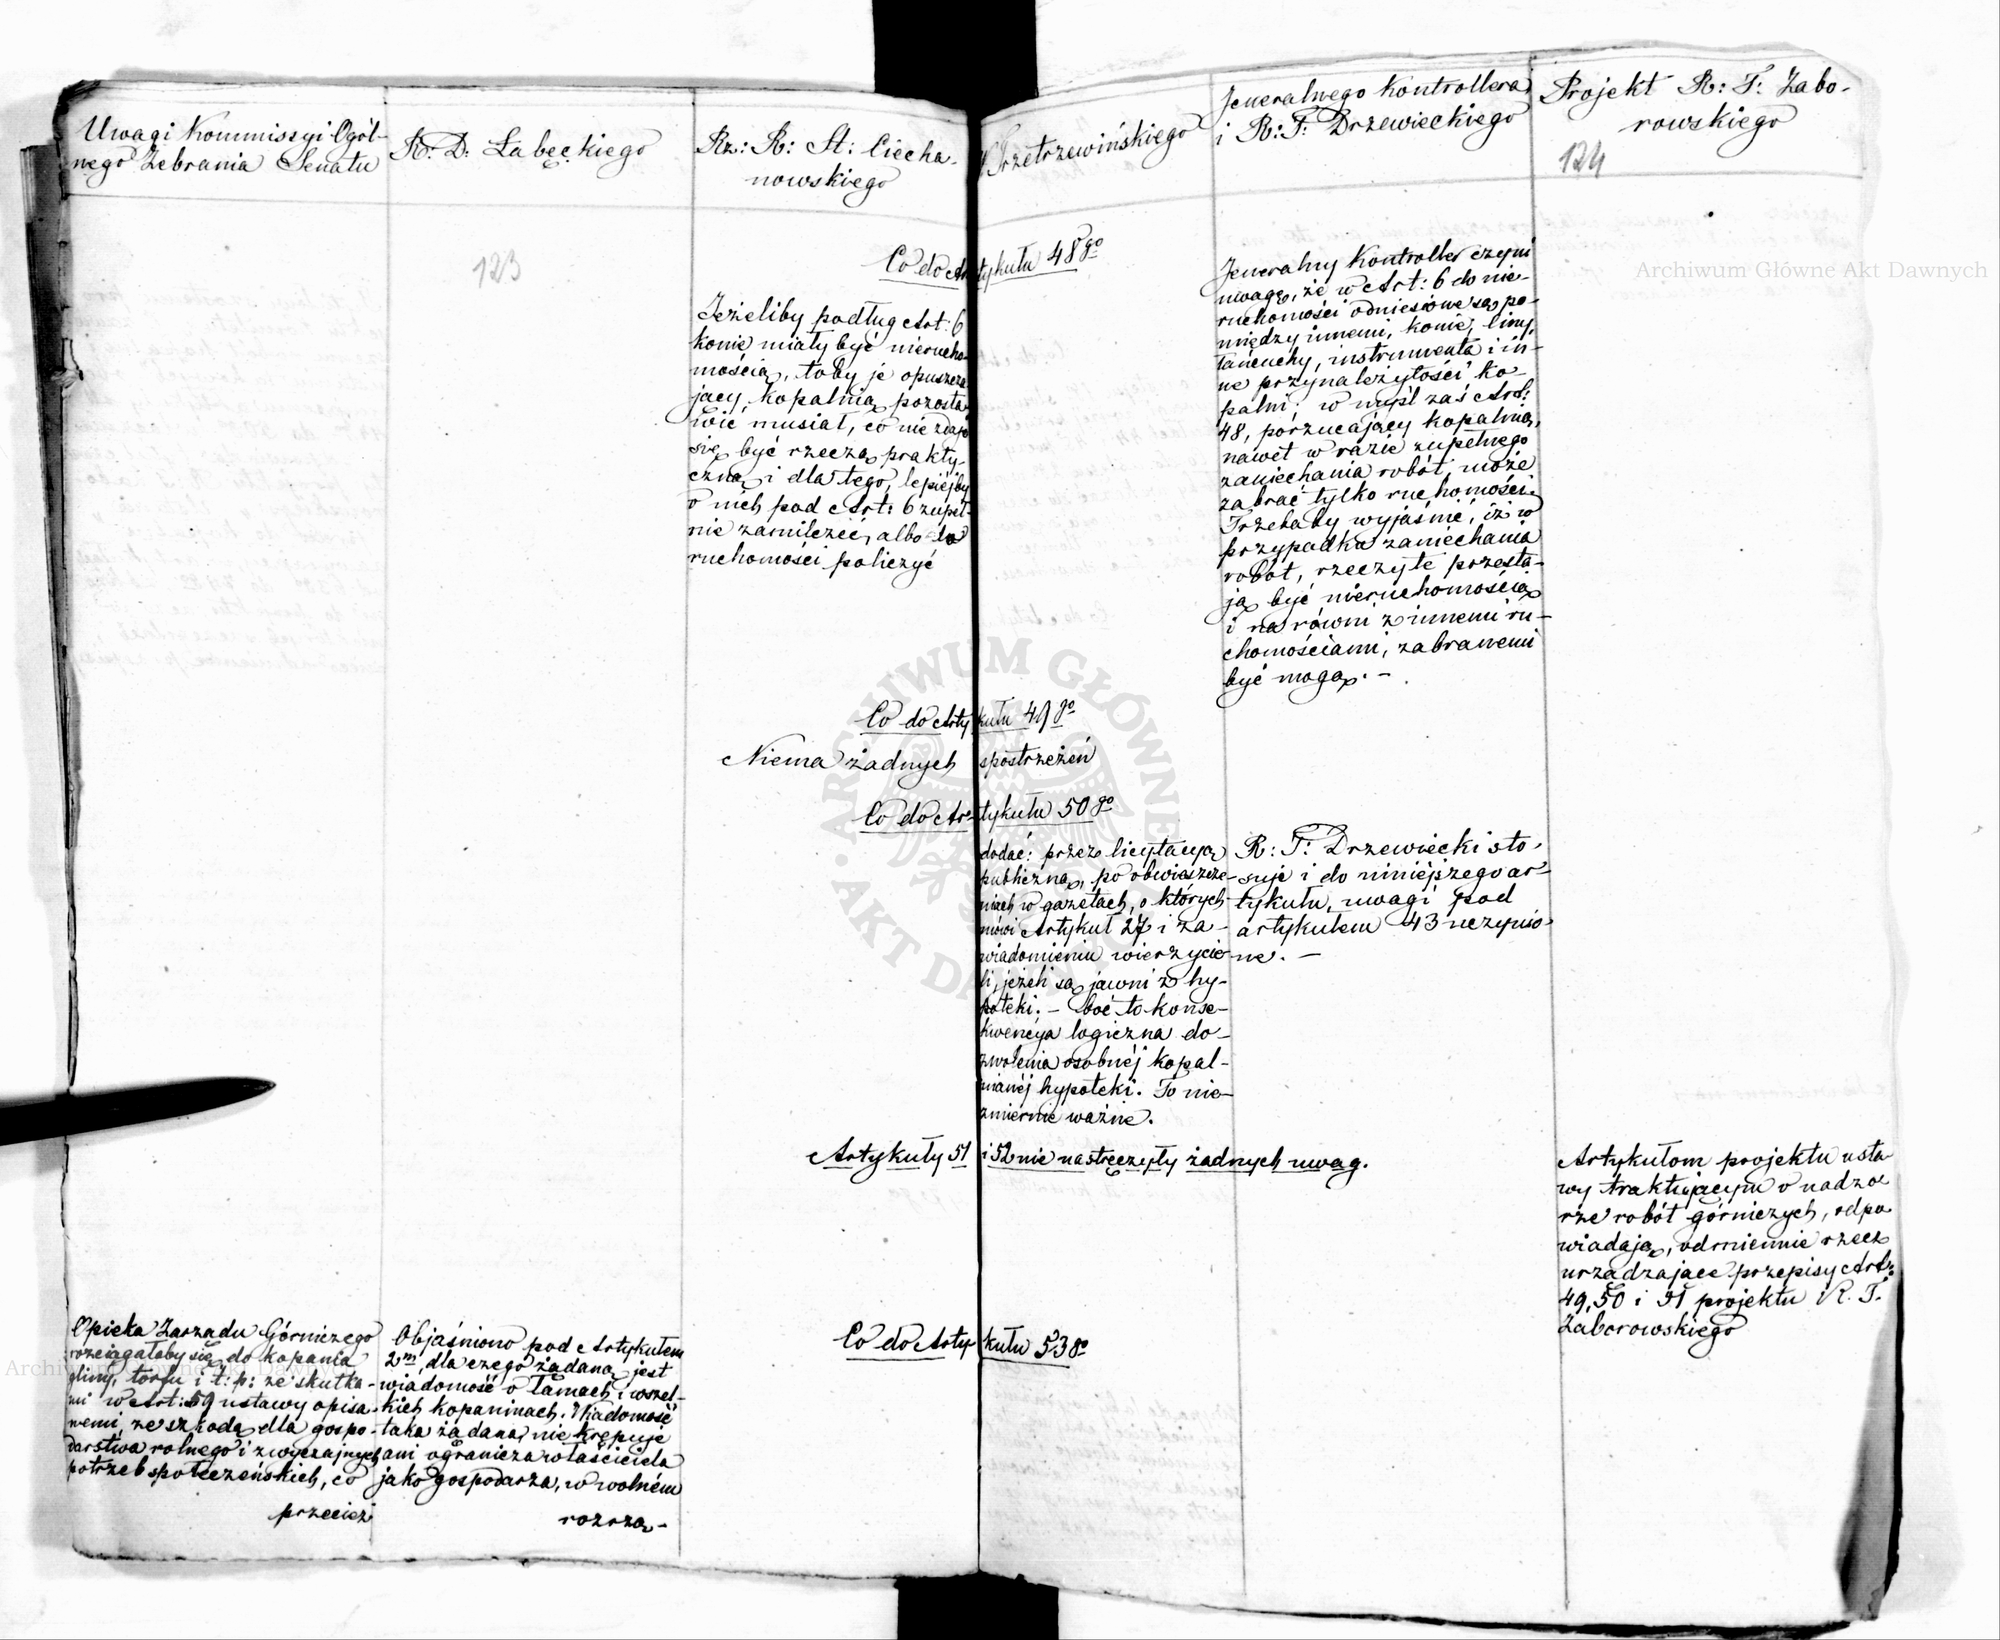 Uwagi Kommissyi Ogól-
nego Zebrania Senatu
R: D: Łabęckiego
Rz: R: St: Ciecha-
nowskiego
Przetrzewińskiego
Jeneralnego Kontrollera
i R: T: Drzewieckiego
Projekt R: T: Zabo-
rowskiego
124
123
Co do Artykułu 48go
Jeżeliby podług Art: 6
konie miały być nierucho-
mością, toby je opuszcza-
jący kopalnią pozosta-
wić musiał, co nie zdaje
się być rzeczą prakty-
czną i dla tego, lepiéjby
o nich pod Art: 6 zupeł-
nie zamilczeć, albo do
ruchomości policzyć
Jeneralny Kontroller czyni
uwagę, że w Art: 6 do nie-
ruchomości odniesione są, po-
między innemi, konie, liny,
łańcuchy, instrumenta i in-
ne przynależytości ko-
palni; w myśl zaś Art:
48, porzucający kopalnią,
nawet w razie zupełnego
zaniechania robót, może
zabrać tylko ruchomości.
Trzebaby wyjaśnić, iż w
przypadku zaniechania
robót, rzeczy te przesta-
ją być nieruchomością
i na równi z innemi ru-
chomościami, zabranemi
być mogą. -
Co do Artykułu 49go
Niema żadnych spostrzeżeń
Co do Artykułu 50go
dodać: przez licytacyą
publiczną, po obwieszcze-
niach w gazetach, o których
mówi Artykuł 27 i za-
wiadomieniu wierzycie-
li, jeżeli są jawni z hy-
poteki. - boć to konse-
kwencya logiczna do-
zwolenia osobnéj kopal-
nianéj hypoteki. To nie-
zmiernie ważne.
R: T: Drzewiecki sto-
suje i do niniejszego ar-
tykułu, uwagi pod
artykułem 43 uczynio-
ne. -
Artykuły 51 i 52 nie nastręczyły żadnych uwag.
Artykułom projektu usta-
wy traktującym o nadzo-
rze robót górniczych, odpo-
wiadają, odmiennie rzecz
urządzające przepisy Art:
49, 50 i 51 projektu R. T.
Zaborowskiego
Co do Artykułu 53go
Opieka Zarządu Górniczego
rozciągałaby się do kopania
gliny, torfu i t: p: ze skutka-
mi w Art: 59 ustawy opisa-
nemi, ze szkodą dla gospo-
darstwa rolnego i zwyczajnych
potrzeb społeczeńskich, co
przecież
Objaśniono pod Artykułem
2m, dla czego żądaną jest
wiadomość o łamach i wszel-
kich kopaninach. Wiadomość
taka żądana, nie krępuje
ani ogranicza właściciela
jako gospodarza, w wolném
rozrzą-
Archiwum Główne Akt Dawnych
ARCHIWUM GŁÓWNE
AKT DAWNYCH
Archiwum Główne Akt Dawnych